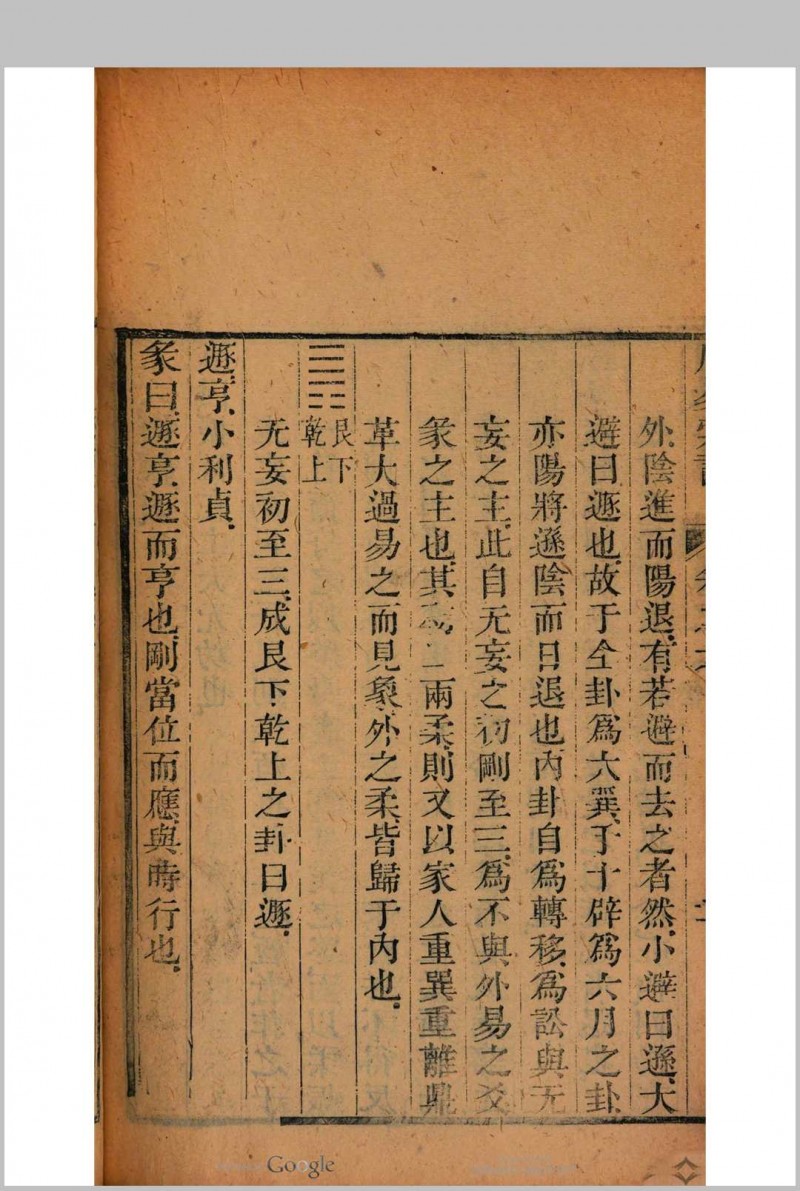 外陰進而陽退有若避而去之者然小避曰遜大
避曰遯也故于全卦為六巽于十辟為六月之卦
亦陽將遜陰而日退也內卦自為轉移為訟與无
妄之主此自无妄之初剛至三為不與外易之爻
彖之主也其二兩柔則又以家人重巽重離鼎
革大過易之而見象外之柔皆歸于內也
艮下
乾上
无妄初至三成艮下乾上之卦曰遯
遯亨小利貞
彖曰遯亨遯而亨也剛當位而應與時行也
Google